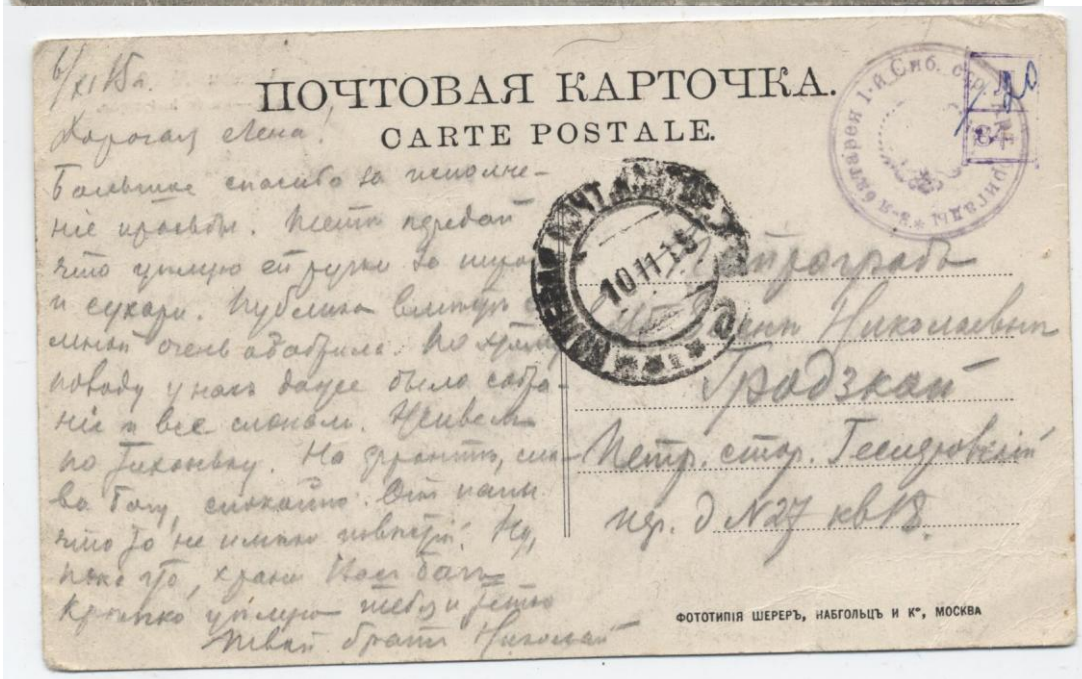 6/XI 15 г.
ПОЧТОВАЯ КАРТОЧКА.
CARTE POSTALE.
Дорогая Лена!
Большое спасибо за исполне-
ніе просьбы. передай
что цѣлую ей ручки за
и сухари. Публика
мной очень. По
поводу у насъ даже было собра-
ніе и все. Живем
по тихоньку. На фронтѣ, сла-
ва Богу, спокойно. От папы
что то не имѣю извѣстій. Ну,
пока что, храни Вас Богъ
Крѣпко цѣлую тебя и тетю
Твой братъ Николай
8-я батарея 1-й Сиб. бригады
10 11 15
Петроградъ
Еленѣ Николаевнѣ
Гродзкой
Петр. стор. Геслеровскій
пер. д N 27 кв 18.
ФОТОТИПІЯ ШЕРЕРЪ, НАБГОЛЬЦЪ И К°, МОСКВА